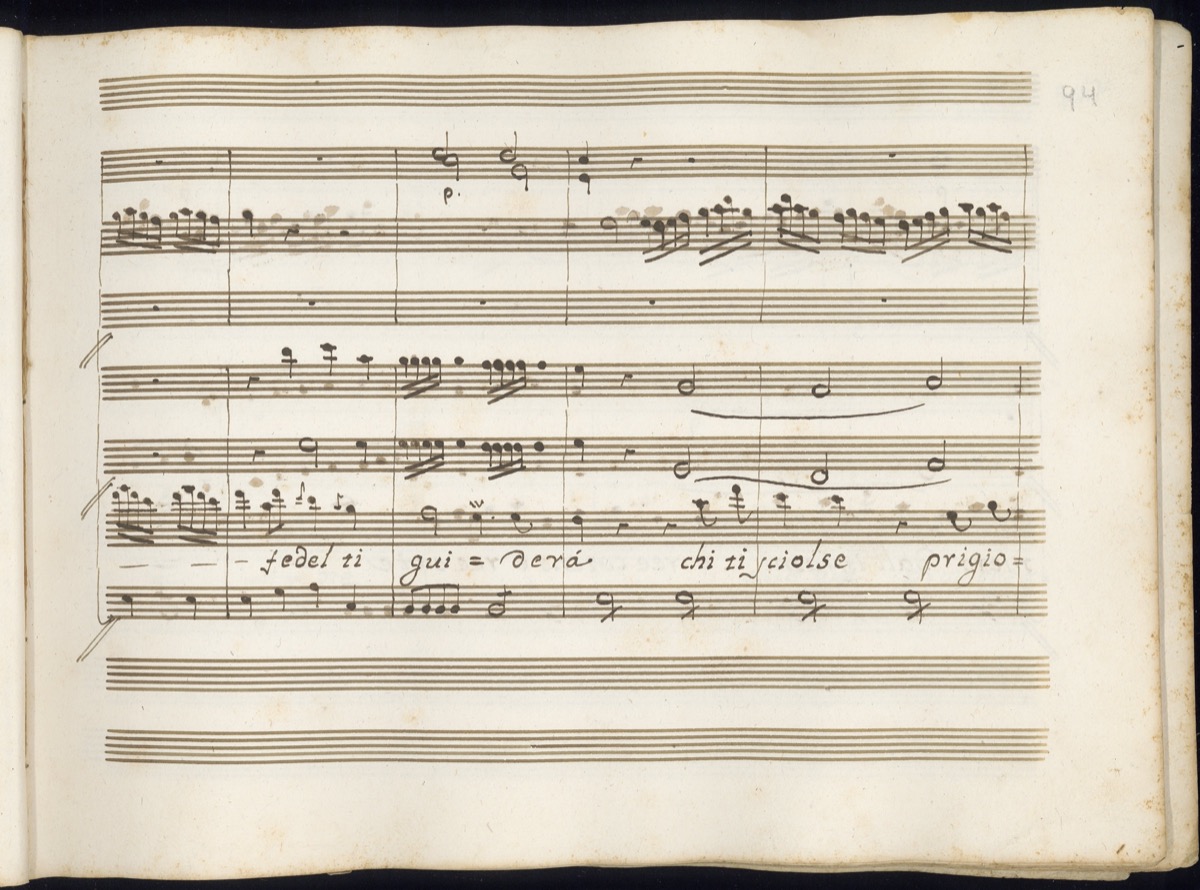 94
p.
— — - fedel ti gui = derá chi ti sciolse prigio =